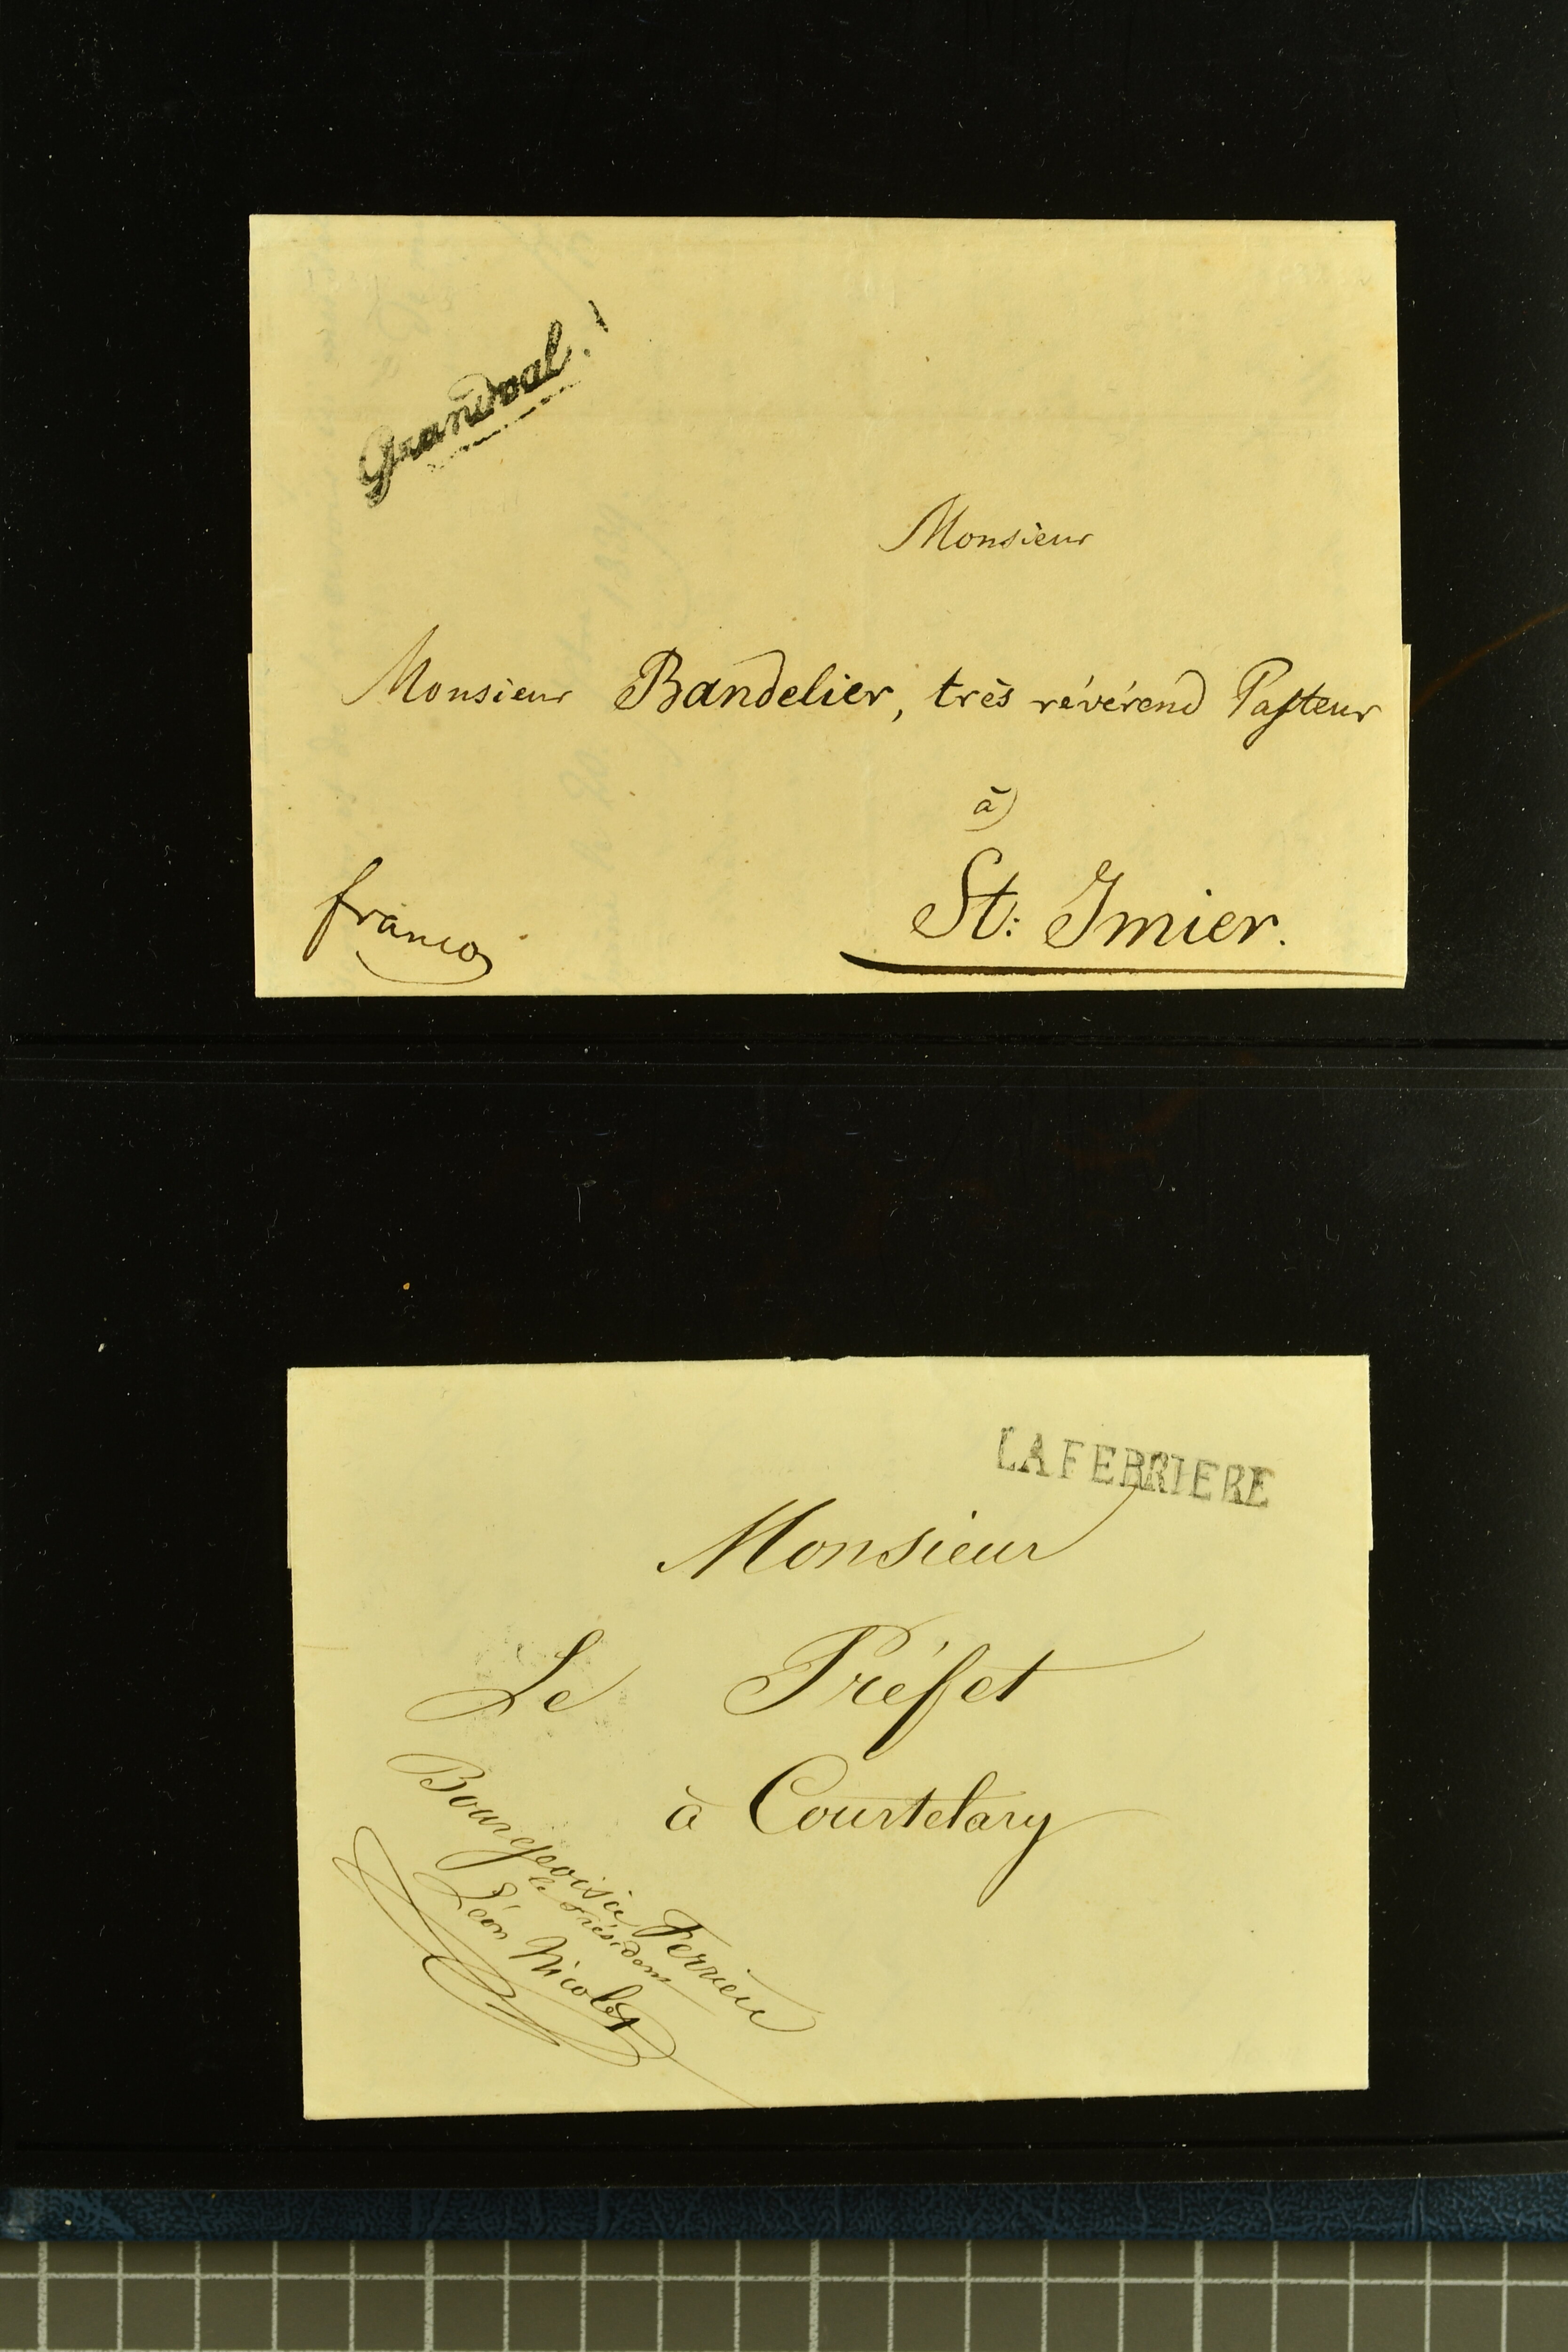 Grandval.
Monsieur
Monsieur Bandelier, très révérend Pasteur
à
St: Imier.
franco
LA FERRIERE
Monsieur
Le Préfet
à Courtelary
Bourgeoisie Ferriere
le présiden
Léon Nicolet